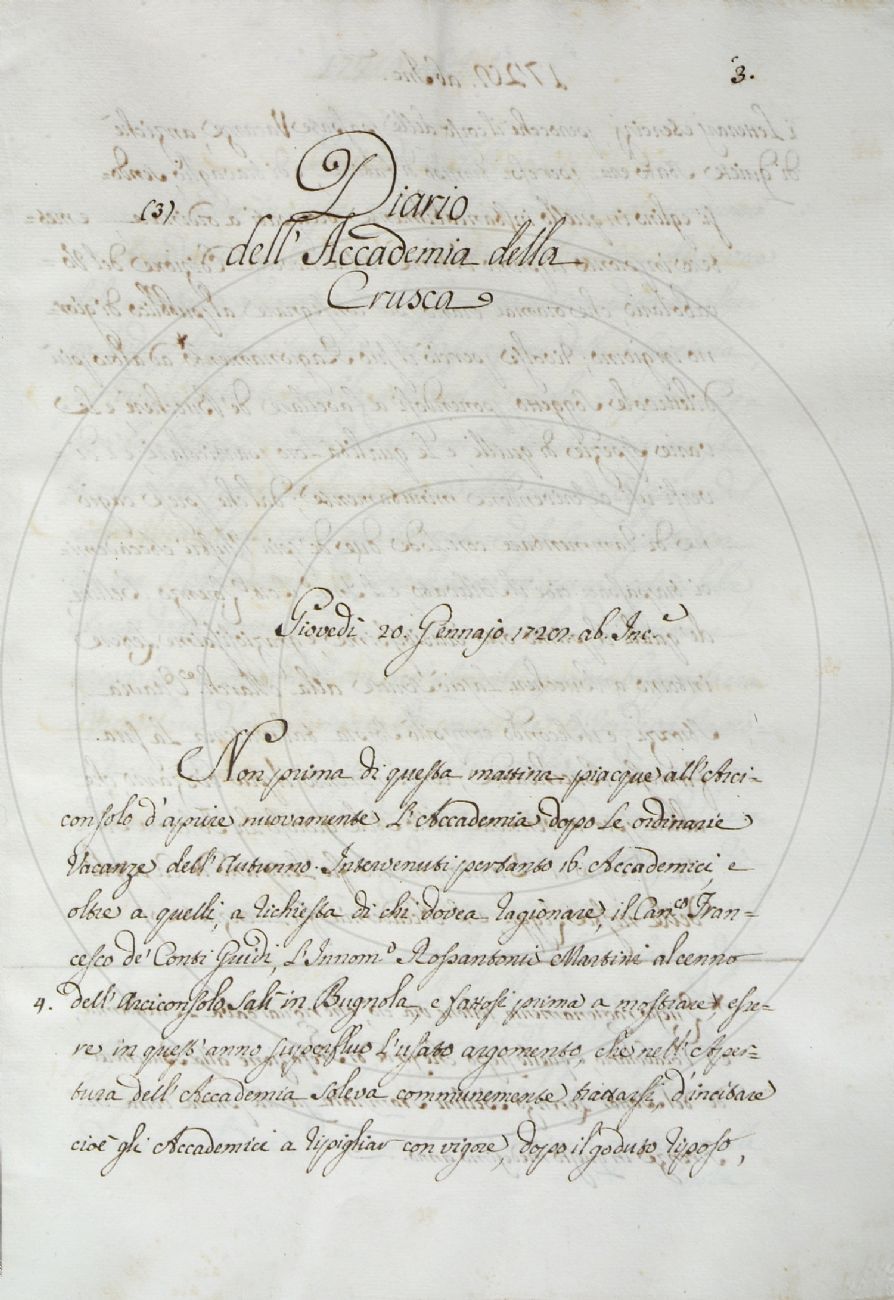 3.
(3) Diario
dell'Accademia della
Crusca
Giovedì 20. Gennajo 1720. ab. Inc.ᵉ
Non prima di questa mattina piacque all'Arci-
consolo d'aprire nuovamente l'Accademia dopo le ordinarie
Vacanze dell'Autunno. Intervenuti pertanto 16. Accademici, e
oltre a quelli, a richiesta di chi dovea ragionare, il Can.co Fran-
cesco de' Conti Guidi, l'Innom.o Rossantonio Martini al cenno
4. dell'Arciconsolo salì in Bugnola, e fattosi prima a mostrare esse-
re in quest'anno superfluo l'usato argomento, che nell'Aper-
tura dell'Accademia soleva communemente trattarsi, d'incitare
cioè gli Accademici a ripigliar con vigore, dopo il goduto riposo,